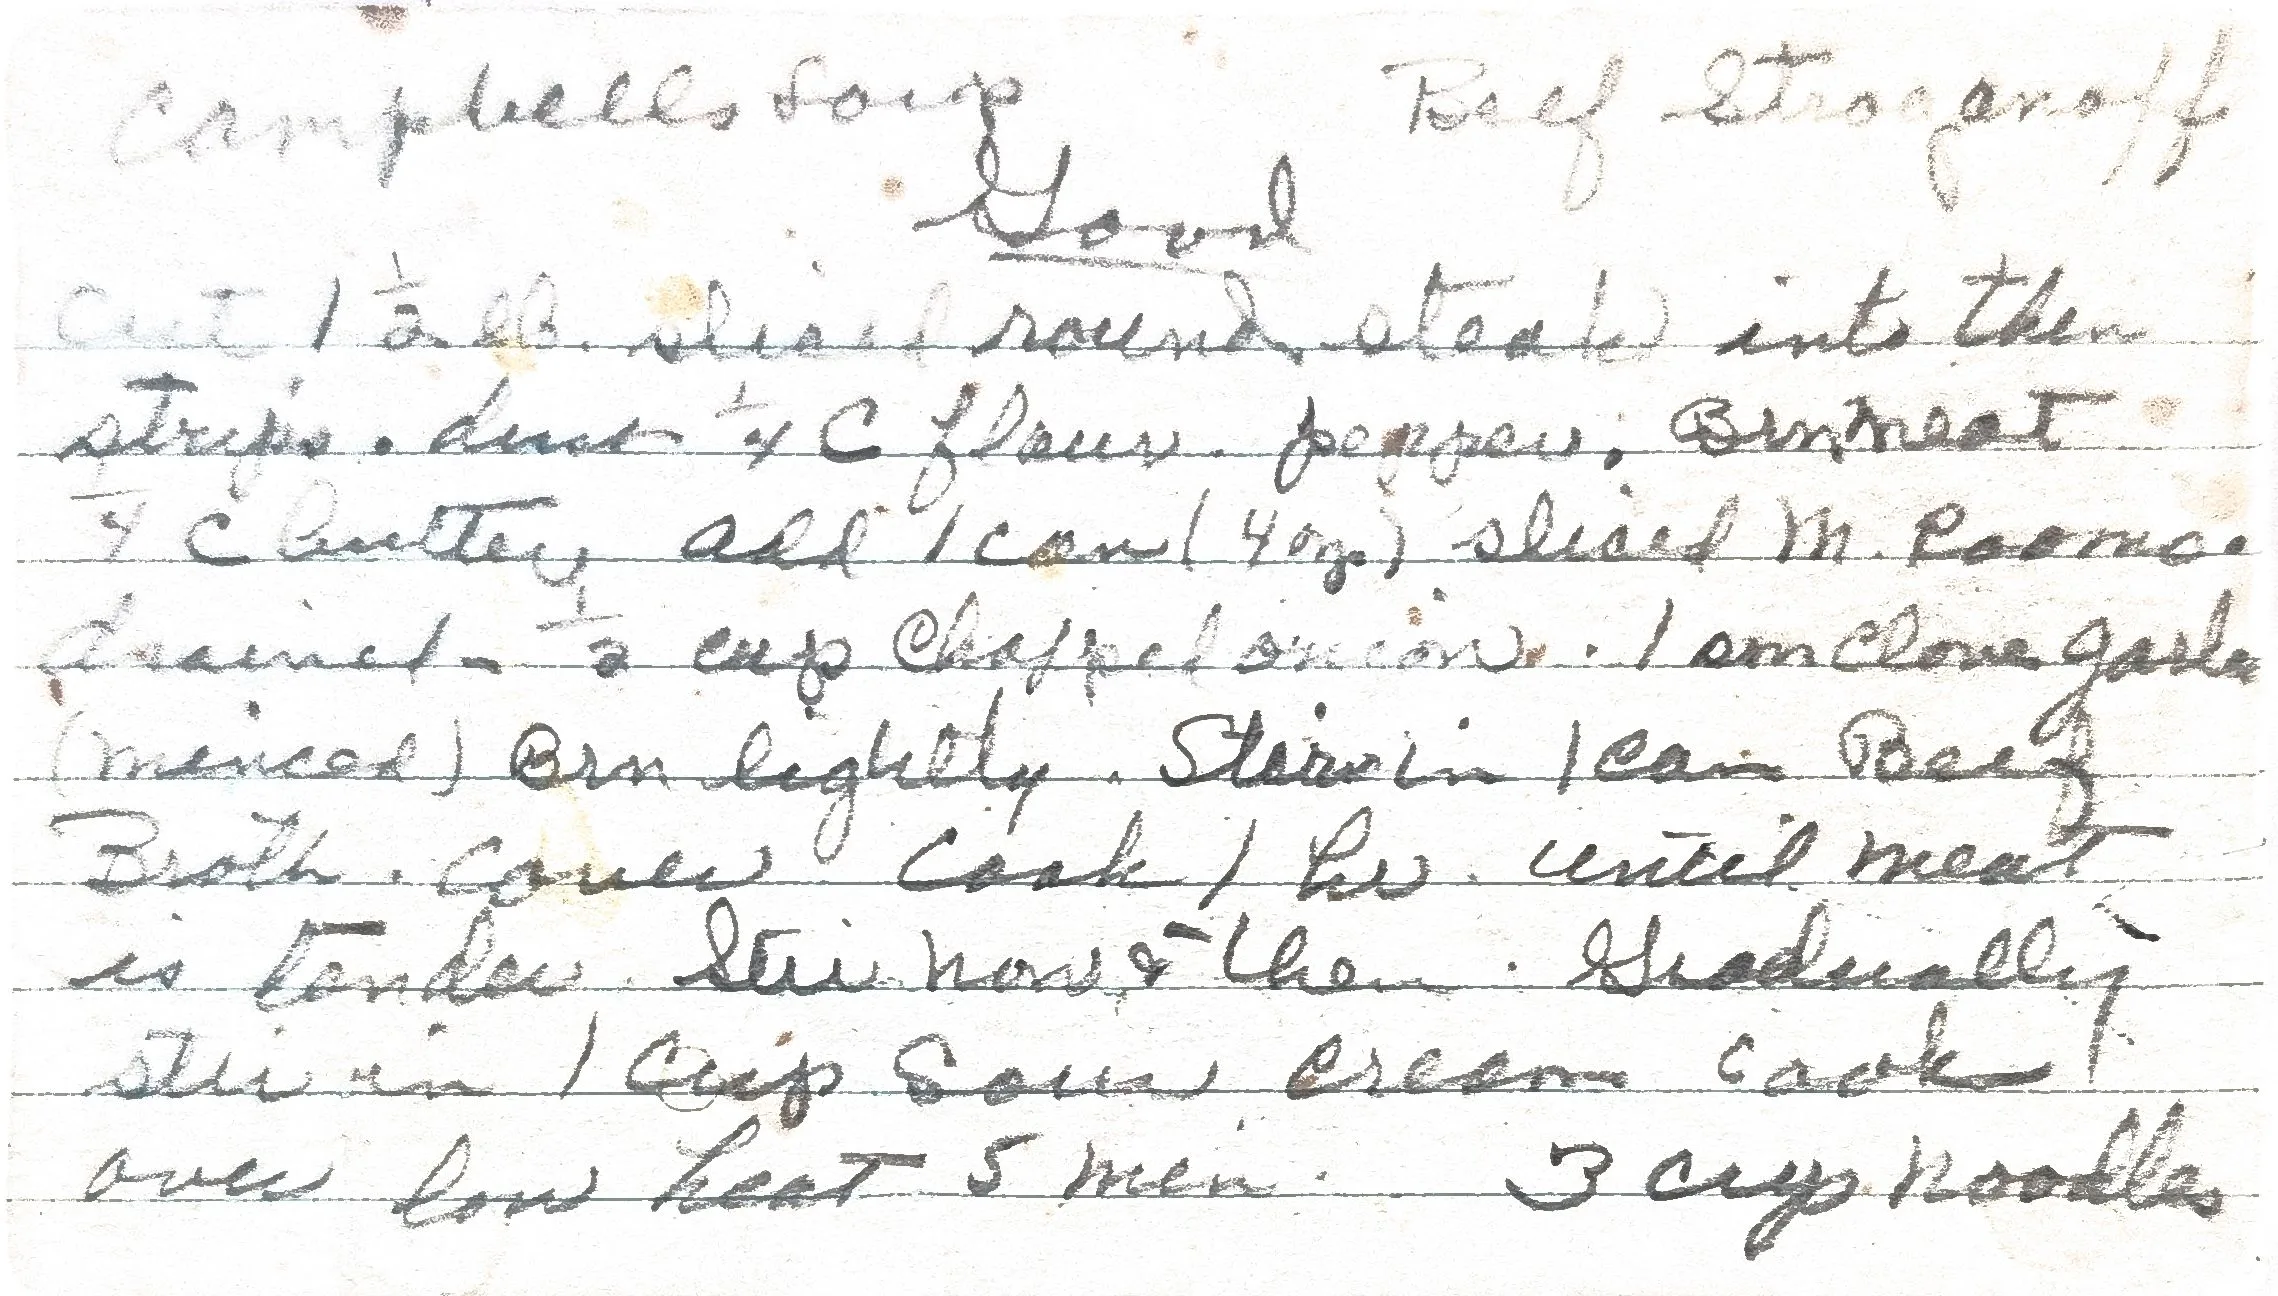 Campbells Soup Beef Strogenoff
Good
Cut 1 1/2 lb. sliced round steak into thin
strips. dust 1/4 C flour. pepper; Brn meat
1/4 C butter, add 1 can (4 oz.) sliced M. Rooms.
drained - 1/2 cup Chopped onion. 1 sm Clove garlic
(minced) Brn lightly. Stir in 1 can Beef
Broth. cover cook 1 hr. until meat
is tender. Stir now & then. Gradually
stir in 1 Cup Sour cream cook
over low heat 5 min. 3 cup noodles